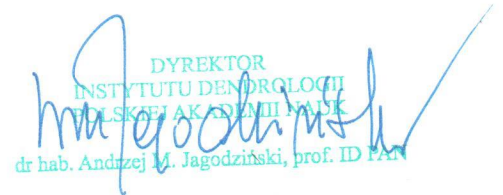 DYREKTOR
INSTYTUTU DENDROLOGII
POLSKIEJ AKADEMII NAUK
dr hab. Andrzej M. Jagodziński, prof. ID PAN